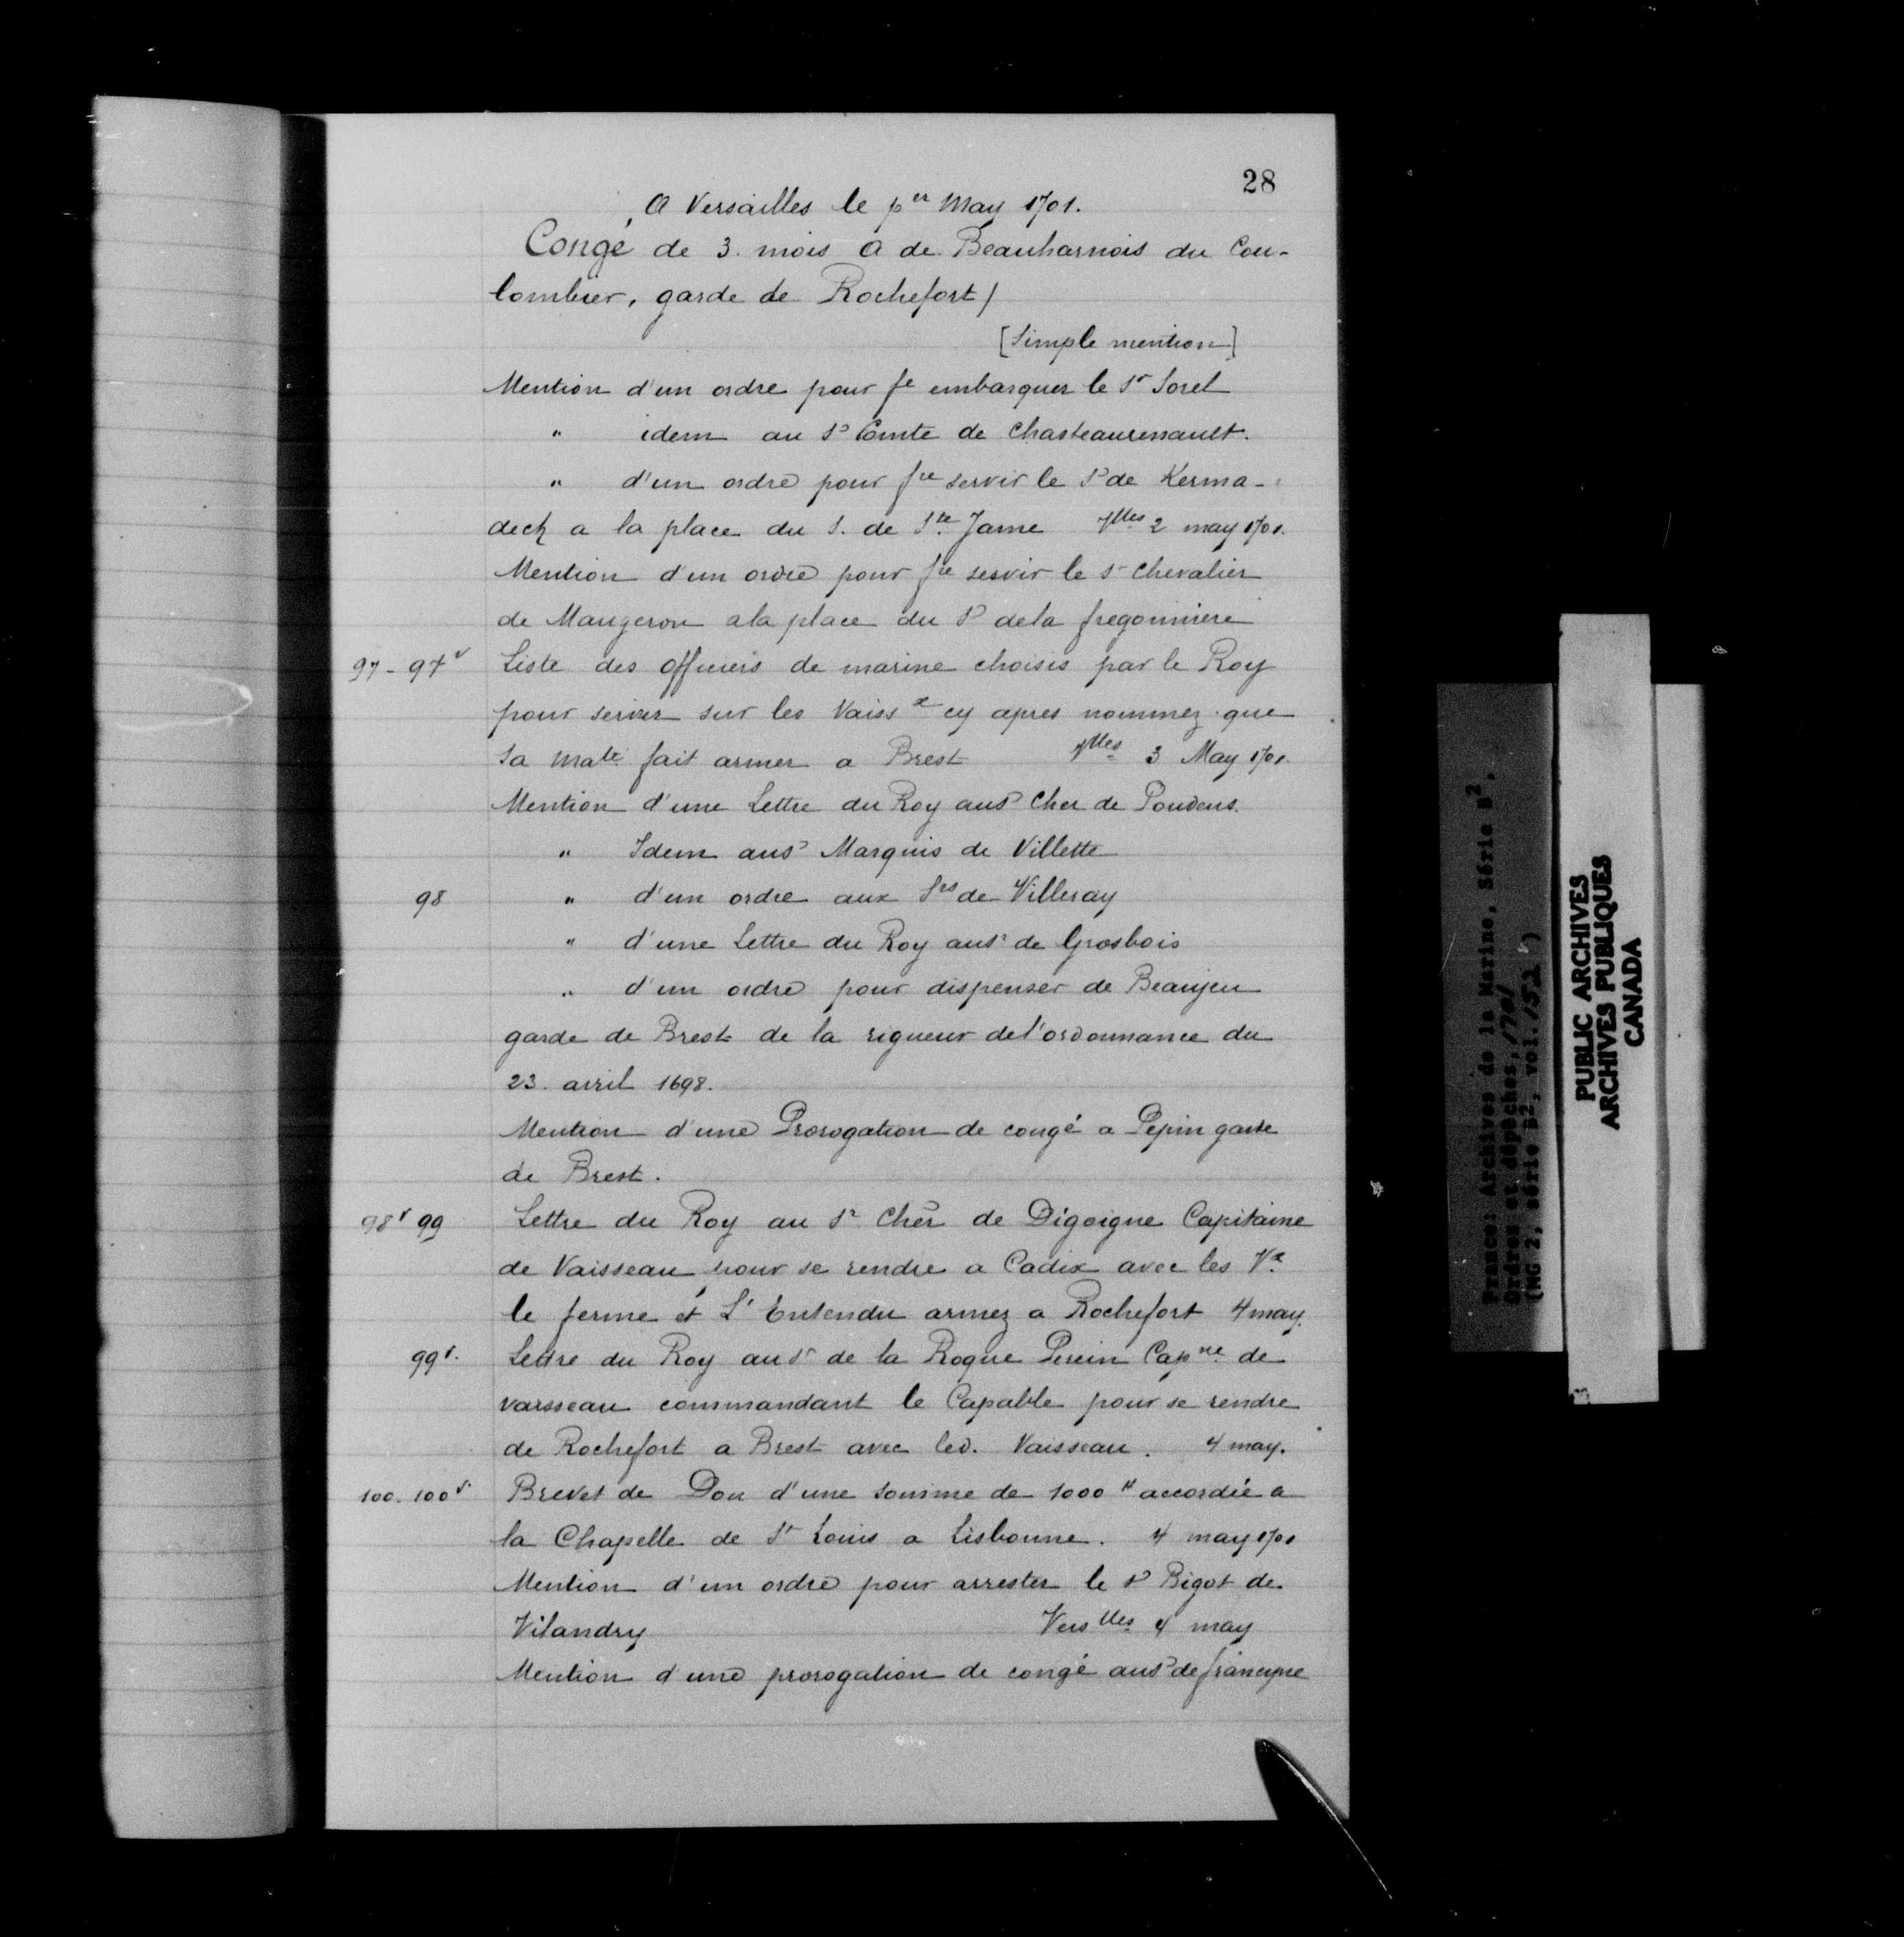 28
A Versailles le per May 1701.
Congé de 3. mois a de Beauharnois du Cou-
lombier, garde de Rochefort/
[Simple mention]
Mention d'un ordre pour fe embarquer le Sr Sorel
" idem au Sr Comte de Chasteaurenault.
" d'un ordre pour fre servir le Sr de Kerma-
dech a la place du S. de Ste Jame Vlles 2 may 1701.
Mention d'un ordre pour fre servir le Sr Chevalier
de Maugeron a la place du Sr dela fregonniere
97-97v Liste des officiers de marine choisis par le Roy
pour servir sur les Vaissx cy apres nommez que
Sa Maté fait armer a Brest Vlles 3 May 1701.
Mention d'une Lettre du Roy aus Cher de Poudens.
" Idem aus Marquis de Villette
98 " d'un ordre aux Srs de Villeray
" d'une Lettre du Roy aus de Grosbois
" d'un ordre pour dispenser de Beaujeu
garde de Brest de la rigueur del'ordonnance du
23. avril 1698.
Mention d'une Prorogation de congé a Pepin garde
de Brest.
98v 99 Lettre du Roy au Sr Cher de Digoigne Capitaine
de Vaisseau pour se rendre a Cadix avec les Vx
le ferme et L'Entendu armez a Rochefort 4 may.
99v. Lettre du Roy au Sr de la Roque Persin Capne de
vaisseau commandant le Capable pour se rendre
de Rochefort a Brest avec led. Vaisseau. 4 may.
100. 100v Brevet de Don d'une somme de 1000 # accordée a
la Chapelle de St Louis a Lisbonne. 4 may 1701
Mention d'un ordre pour arrester le Sr Bigot de
Vilandry Verslles 4 may
Mention d'une prorogation de congé aus de francyne
France: Archives de la Marine, Série B2,
Ordres et dépêches, 1701
(MG 2, série B2, vol. 152)
PUBLIC ARCHIVES
ARCHIVES PUBLIQUES
CANADA